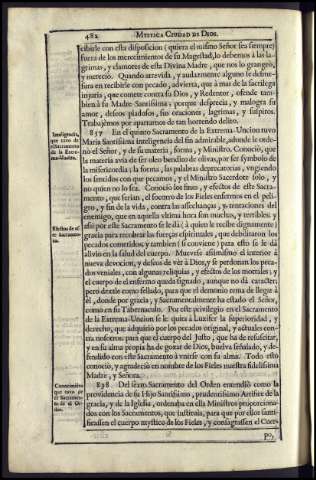 482 MYSTICA CIUDAD DE DIOS.
cibirle con esta disposicion (quiera el mismo Señor sea siempre)
fuera de los merecimientos de su Magestad, lo debemos à las la-
grimas, y clamores de esta Divina Madre, que nos lo grangeò,
y mereciò. Quando atrevida, y audazmente alguno se desme-
sura en recibirle con pecado, advierta, que à mas de la sacrilega
injuria, que comete contra su Dios, y Redentor, ofende tam-
bien à su Madre Santissima; porque desprecia, y malogra su
amor, deseos piadosos, sus oraciones, lagrimas, y suspiros.
Trabajemos por apartarnos de tan horrendo delito.
Inteligencia,
que tuvo de
el Sacramento
de la Extre-
ma-Uncion.
837 En el quinto Sacramento de la Extrema-Uncion tuvo
Maria Santissima inteligencia del fin admirable, adonde le orde-
nò el Señor, y de su materia, forma, y Ministro. Conociò, que
la materia avia de ser oleo bendito de olivas, por ser symbolo de
la misericordia; la forma, las palabras deprecatorias, vngiendo
los sentidos con que pecamos, y el Ministro Sacerdote solo, y
no quien no lo sea. Conociò los fines, y efectos de este Sacra-
mento, que serian, el socorro de los Fieles enfermos en el peli-
gro, y fin de la vida, contra las assechanças, y tentaciones del
enemigo, que en aquella vltima hora son muchas, y terribles; y
Efectos de el-
te Sacramen-
to.
assi por este Sacramento se le dà (à quien le recibe dignamente)
gracia para recobrar las fuerças espirituales, que debilitaron los
pecados cometidos; y tambien (si conviene) para esto se le dà
alivio en la salud del cuerpo. Muevese assimismo el interior à
nueva devocion, y deseos de vèr à Dios, y se perdonan los peca-
dos veniales, con algunas reliquias, y efectos de los mortales; y
el cuerpo de el enfermo queda signado, aunque no dà caracter;
pero dexale como sellado, para que el demonio tema de llegar à
èl, donde por gracia, y Sacramentalmente ha estado el Señor,
como en su Tabernaculo. Por este privilegio en el Sacramento
de la Extrema-Uncion se le quita à Luzifer la superioridad, y
derecho, que adquiriò por los pecados original, y actuales con-
tra nosotros; para que el cuerpo del Justo, que ha de resuscitar,
y en su alma propia ha de gozar de Dios, buelva señalado, y de-
fendido con este Sacramento à vnirse con su alma. Todo esto
conociò, y agradeciò en nombre de los Fieles nuestra fidelissima
Madre, y Señora.
Conocimiento
que tuvo de
el Sacramen-
to de el Or-
den.
838 Del sexto Sacramento del Orden entendiò como la
providencia de su Hijo Santissimo, prudentissimo Artifice de la
gracia, y de la Iglesia, ordenaba en ella Ministros proporciona-
dos con los Sacramentos, que instituìa, para que por ellos santi-
ficassen el cuerpo mystico de los Fieles, y consagrassen el Cuer-
po,